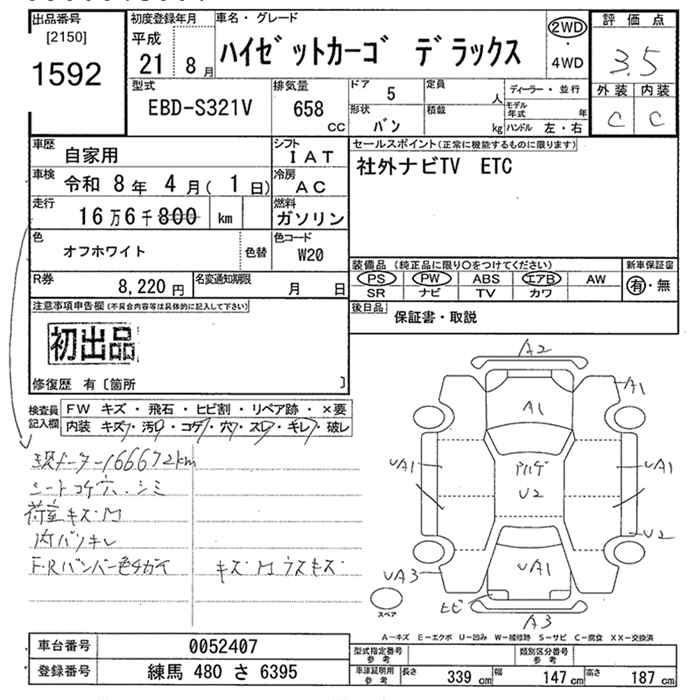 出品番号
[2150]
1592
初度登録年月
平成
21 8月
車名・グレード
ハイゼットカーゴ デラックス
2WD
・
4WD
評価点
3.5
外装 内装
C C
型式
EBD-S321V
排気量
658
CC
ドア 5
形状 バン
定員 人
積載 kg
ディーラー・並行
モデル年式 年
ハンドル 左・右
車歴 自家用
シフト IAT
車検 令和 8年 4月(1日)
冷房 AC
走行 16万6千800 km
燃料 ガソリン
色 オフホワイト
色替
色コード W20
R券 8,220円
名変通知期限 月 日
セールスポイント(正常に機能するものに限ります)
社外ナビTV ETC
装備品 (純正品に限り○をつけてください)
新車保証書
PS PW ABS エアB AW
SR ナビ TV カワ
有・無
後日品 保証書・取説
注意事項申告欄(不具合内容等は具体的に記入して下さい)
初出品
修復歴 有〔箇所 〕
検査員記入欄
FW キズ・飛石・ヒビ割・リペア跡・×要
内装 キズ・汚レ・コゲ・穴・スレ・キレ・破レ
現メーター166672km
シートコゲ穴、シミ
荷室キズ凹
内バリキレ
F・Rバンパー色チガイ キズ凹ウスキズ
A2
A1
A1
UA1
UA1
U2
U2
UA1
UA3
ヒビ
A3
スペア
A-キズ E-エクボ U-凹み W-補修跡 S-サビ C-腐食 XX-交換済
車台番号 0052407
登録番号 練馬 480 さ 6395
型式指定番号 参考
類別区分番号 参考
車庫証明用 参考
長さ 339cm 幅 147cm 高さ 187cm